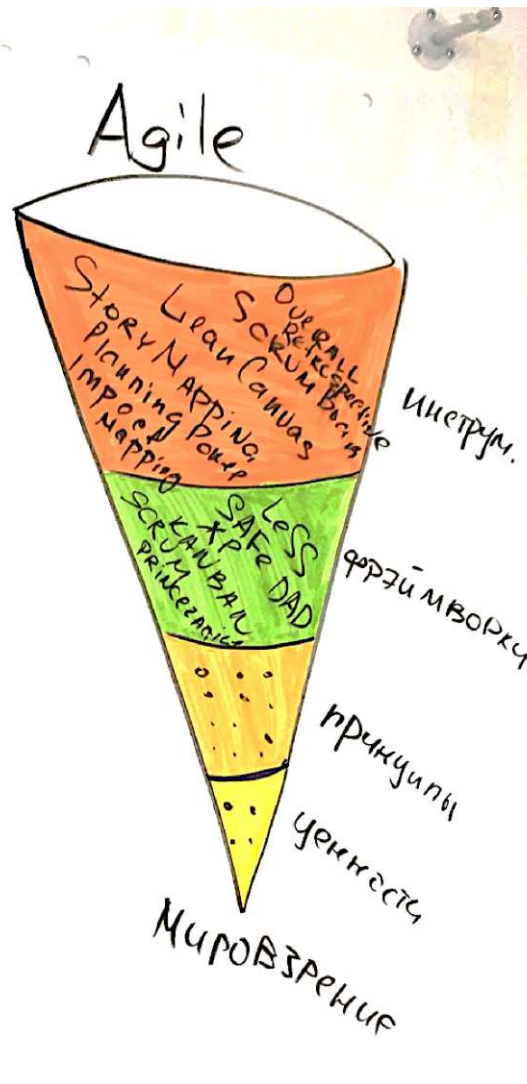 Agile
Overall
Retrospective
Scrum Board
Lean Canvas
Story Mapping
Planning Poker
Impact
Mapping
инструм.
LeSS
SAFe DAD
XP
KANBAN
SCRUM
фрэймворки
принципы
ценности
Мировзрение